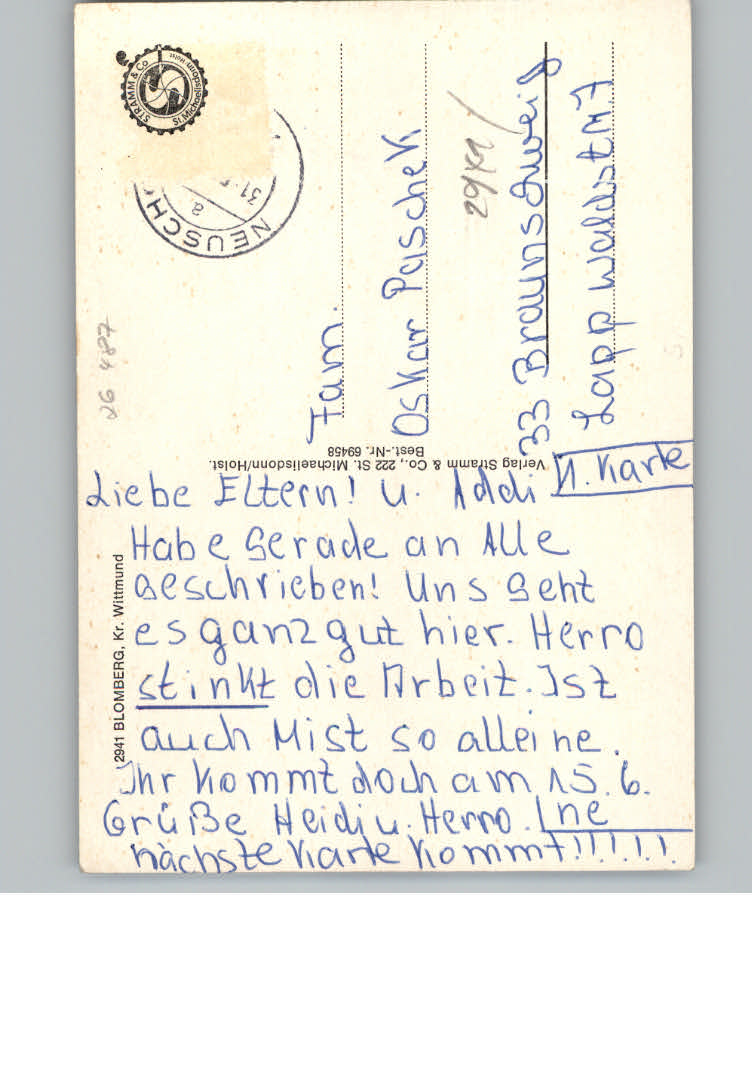 Liebe Eltern! u. Addi
1. Karte
Habe Gerade an Alle
Geschrieben! Uns Geht
es ganz gut hier. Herro
stinkt die Arbeit. Ist
auch Mist so alleine.
Ihr kommt doch am 15.6.
Grüße Heidi u. Herro. ne
nächste Karte kommt!!!!!!
Fam.
Oskar Paschek
33 Braunschweig
Lappwaldstr 17
29 K1/
26 487
2941 BLOMBERG, Kr. Wittmund
Verlag Stramm & Co., 222 St. Michaelisdonn/Holst.
Best.-Nr. 69458
STRAMM & Co
St. Michaelisdonn
NEUSCH
31.
a